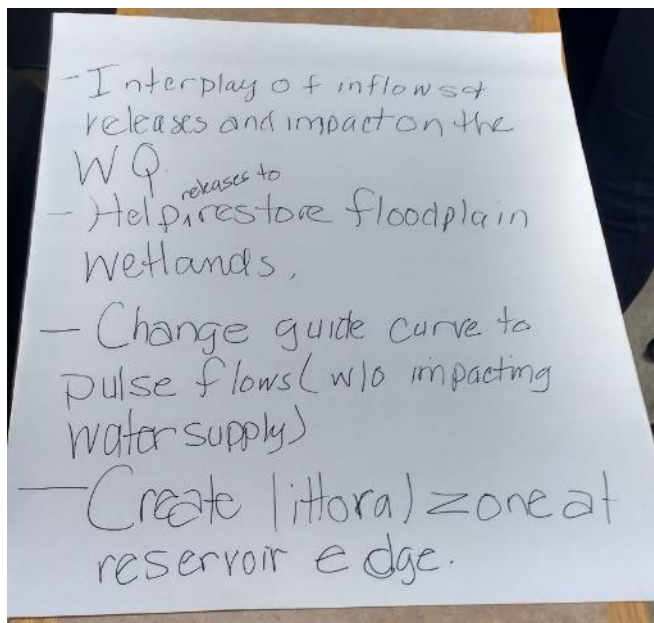 - Interplay of inflows &
releases and impact on the
WQ.
releases to
- Help ^ restore floodplain
wetlands,
- Change guide curve to
pulse flows (w/o impacting
water supply)
- Create littoral zone at
reservoir edge.